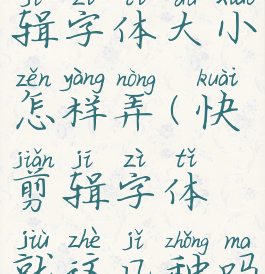 jí zì tǐ dà xiǎo
辑字体大小
zěn yàng nòng kuài
怎样弄(快
jiǎn jí zì tǐ
剪辑字体
jiù zhè jǐ zhǒng ma
就这几种吗